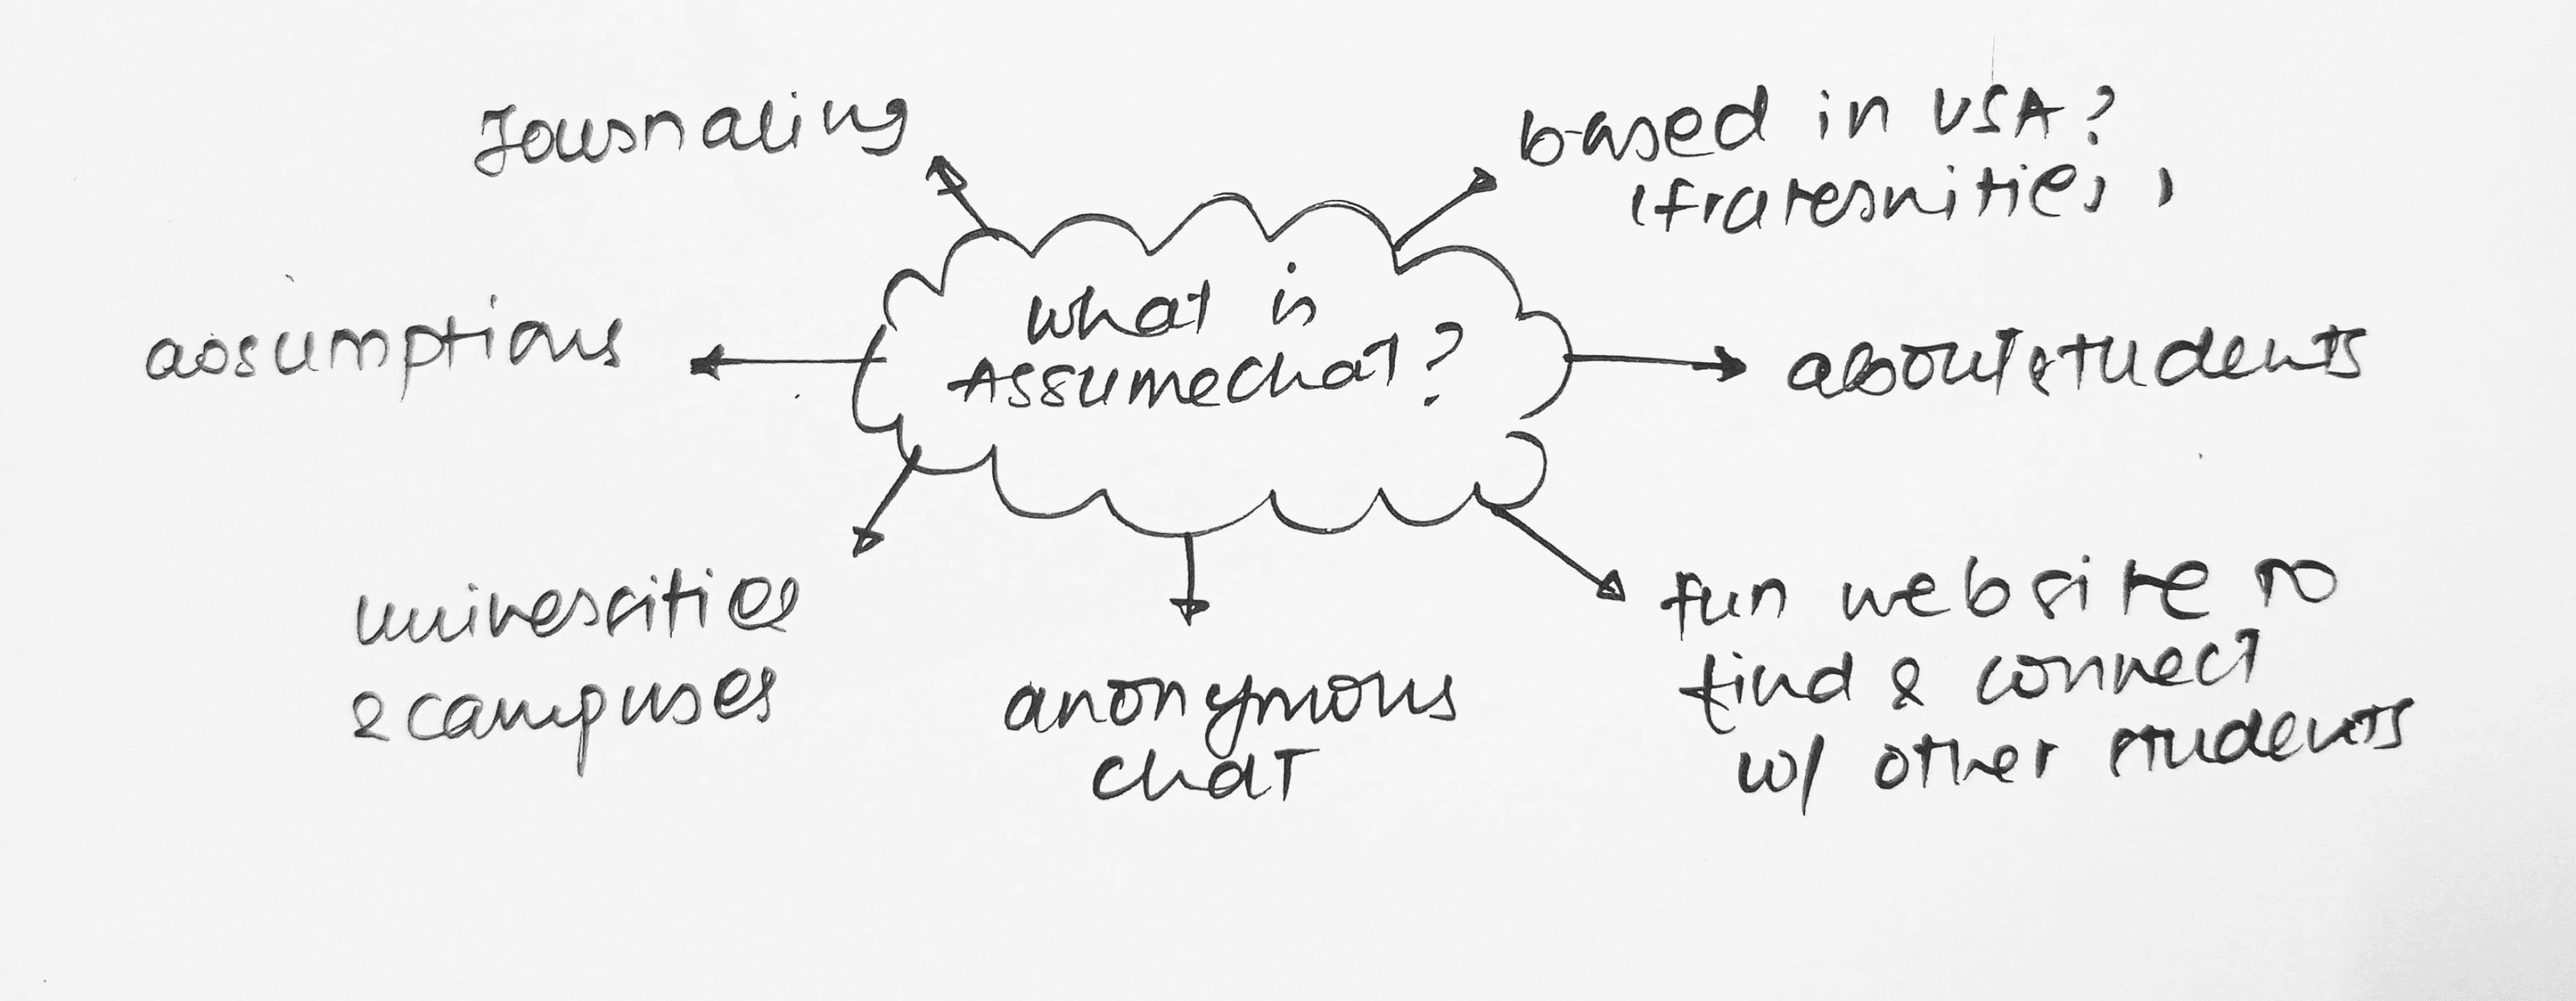 Journaling
based in USA?
(fraternities)
what is
AssumeChat?
assumptions
about students
universities
& campuses
anonymous
chat
fun website to
find & connect
w/ other students